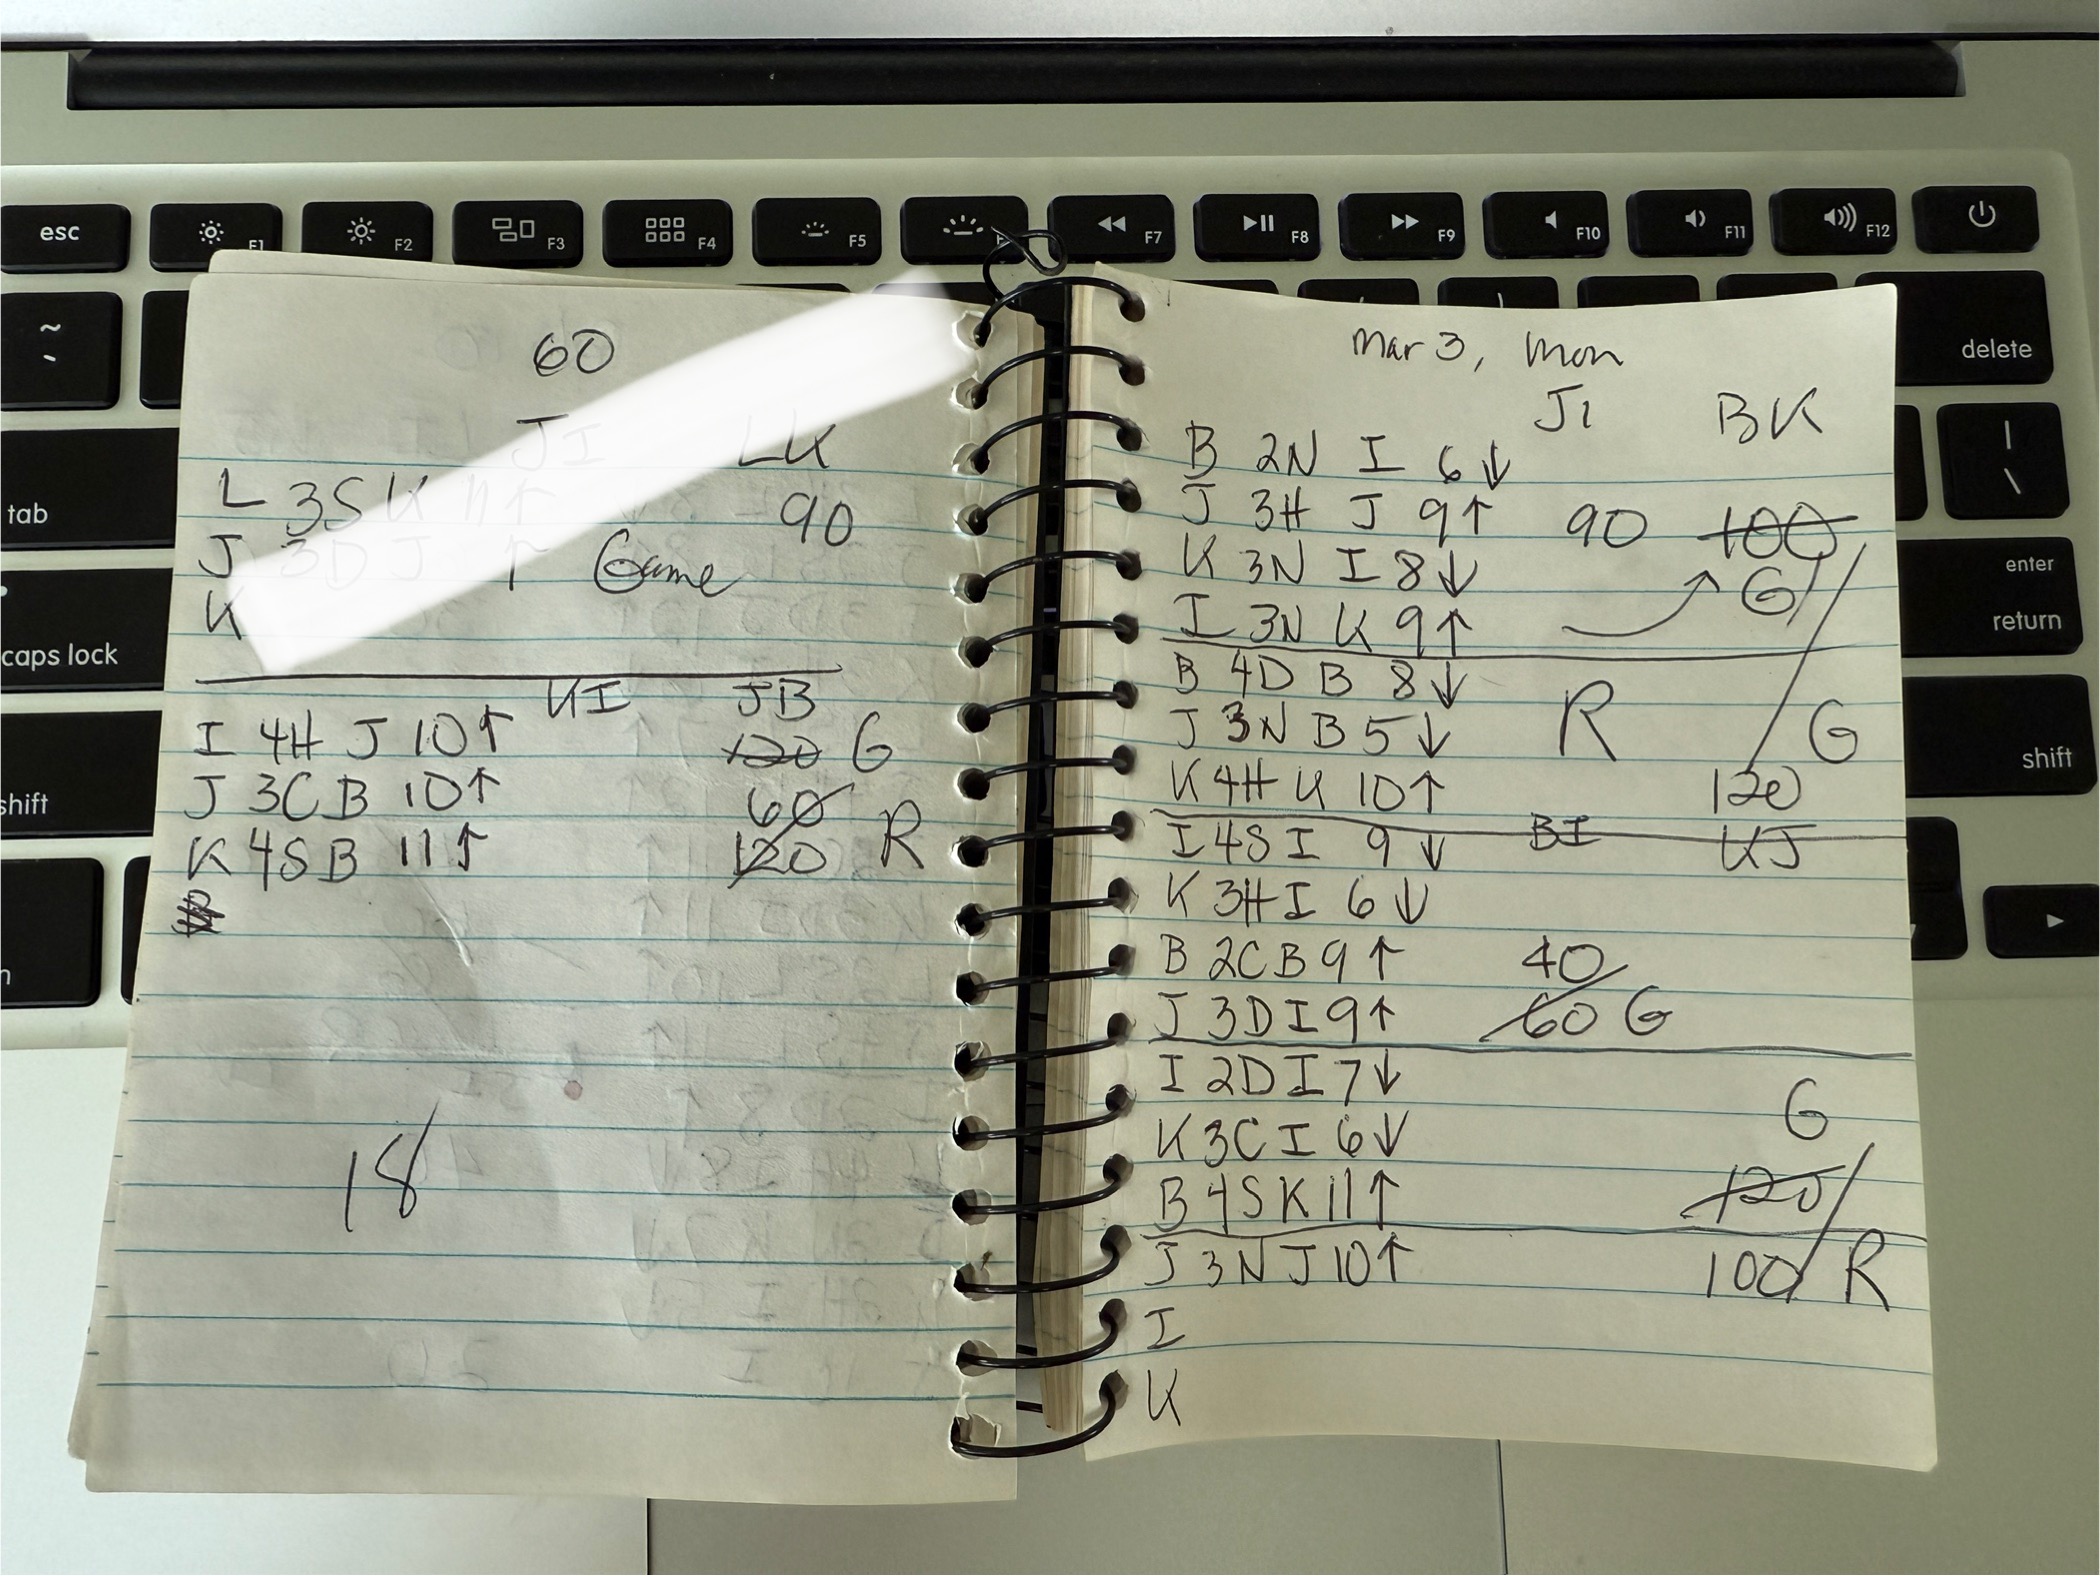 esc
F1
F2
F3
F4
F5
F7
F8
F9
F10
F11
F12
~
delete
tab
caps lock
enter
return
shift
shift
|
\
60
JI LK
L 3S K 11↑ 90
J 3D J ↑ Game
K
KI JB
I 4H J 10↑ 120 G
J 3C B 10↑ 60
K 4S B 11↑ 120 R
18
Mar 3, Mon
JI BK
B 2N I 6↓
J 3H J 9↑ 90 100
K 3N I 8↓ G
I 3N K 9↑
B 4D B 8↓ R
J 3N B 5↓ G
K 4H K 10↑ 120
BI KJ
I 4S I 9↓
K 3H I 6↓
B 2C B 9↑ 40
J 3D I 9↑ 60 G
I 2D I 7↓
K 3C I 6↓ G
B 4S K 11↑ 120
J 3N J 10↑ 100 R
I
K